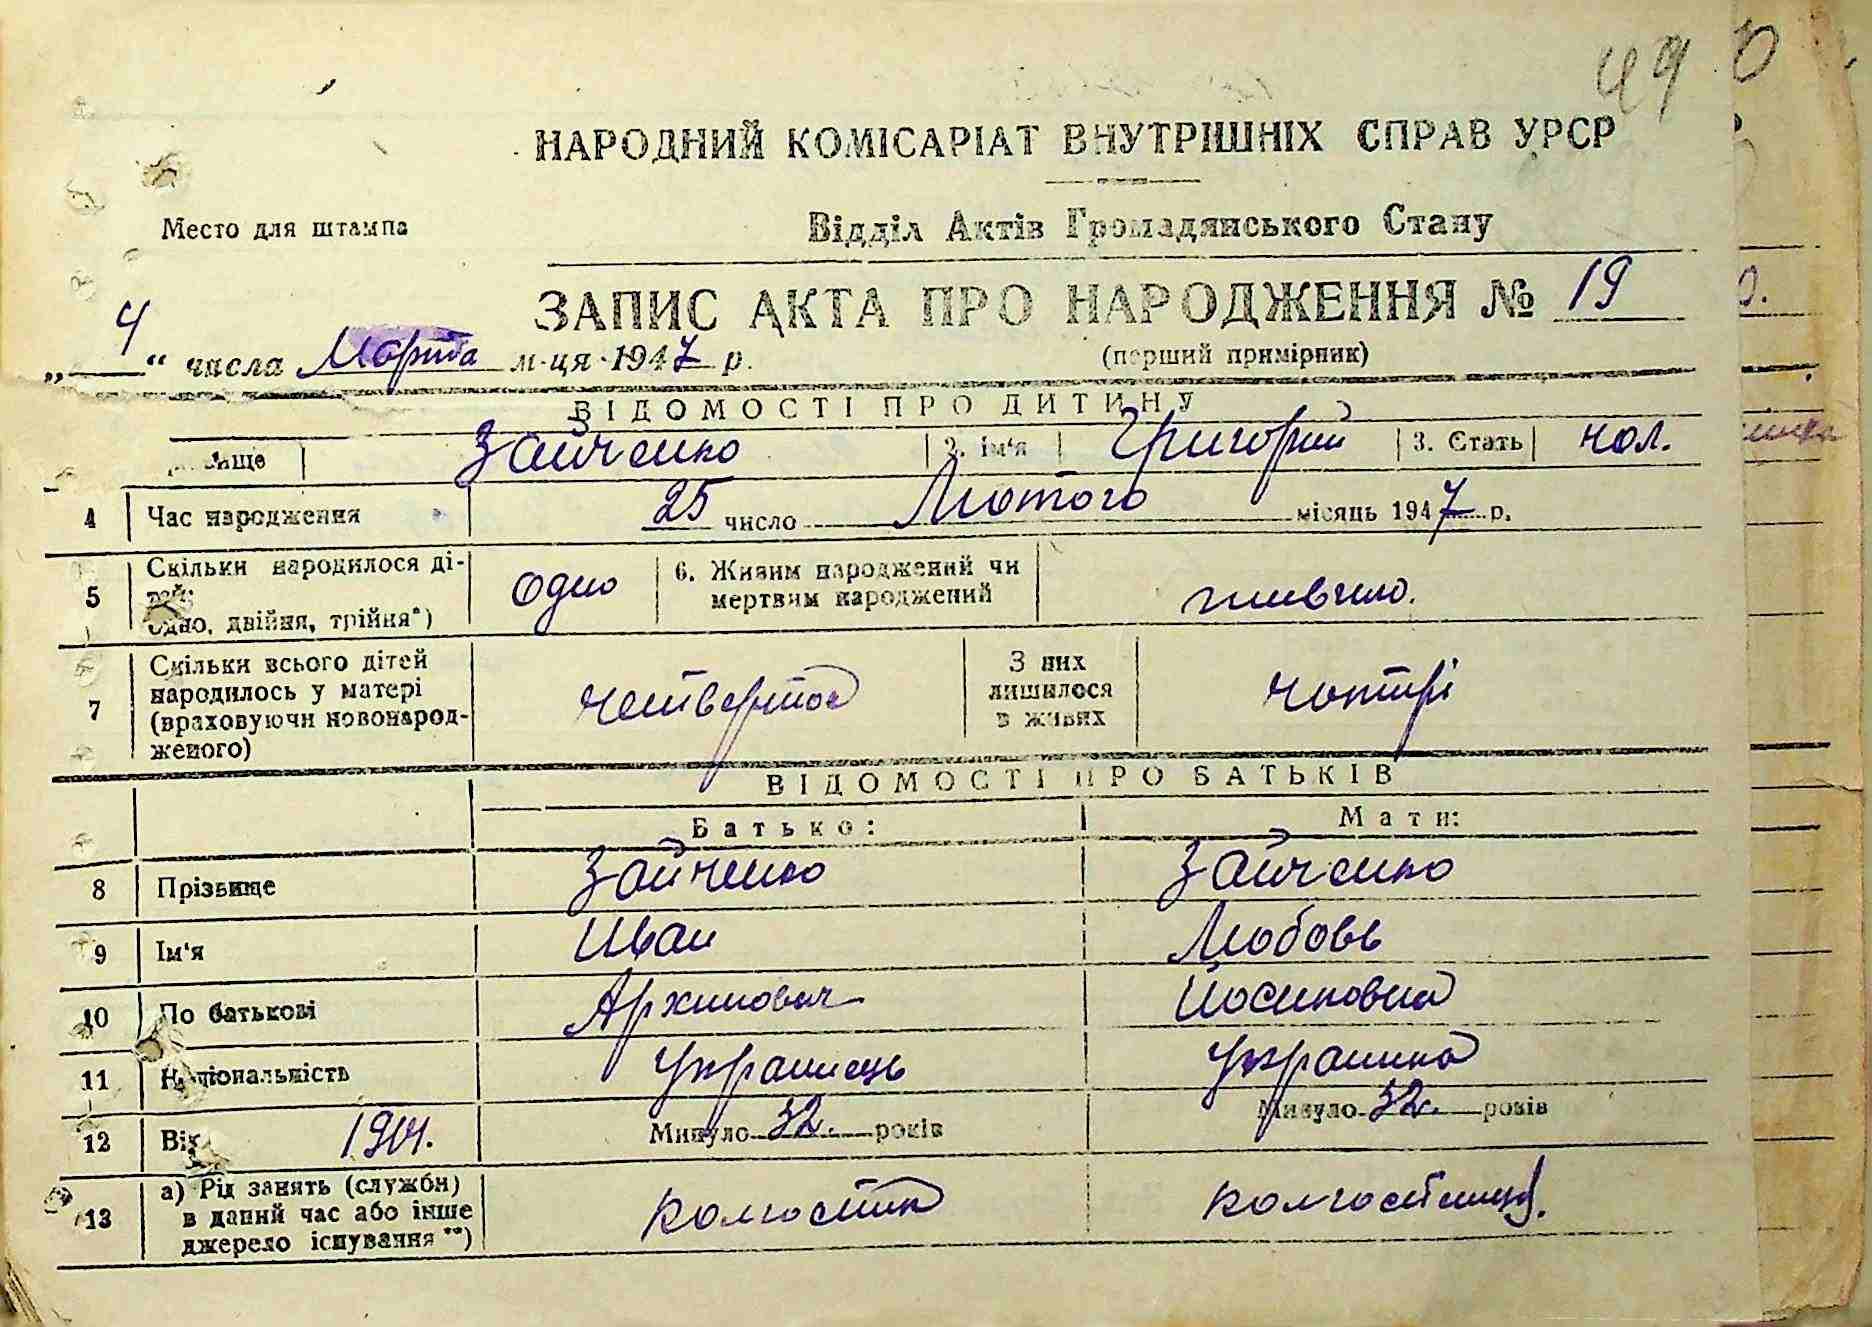 49
НАРОДНИЙ КОМІСАРІАТ ВНУТРІШНІХ СПРАВ УРСР
Место для штампа
Відділ Актів Громадянського Стану
ЗАПИС АКТА ПРО НАРОДЖЕННЯ № 19
(перший примірник)
„4“ числа Марта м-ця 1947 р.
ВІДОМОСТІ ПРО ДИТИНУ
Зайченко 2. Ім'я Григорий 3. Стать чол.
4 Час народження 25 число Лютого місяць 1947 р.
5 Скільки народилося ді-
тей:
одно, двійня, трійня*) одно 6. Живим народжений чи
мертвим народжений живило.
7 Скільки всього дітей
народилось у матері
(враховуючи новонарод-
женого) четверта З них
лишилося
в живих чотирі
ВІДОМОСТІ ПРО БАТЬКІВ
Батько: Мати:
8 Прізвище Зайченко Зайченко
9 Ім'я Иван Любовь
10 По батькові Архипович Йосиповна
11 Національність Українець Українка
12 Вік Минуло 32. років Минуло 32. років
13 а) Рід занять (служби)
в даний час або інше
джерело існування **) колгостник колгостниця.